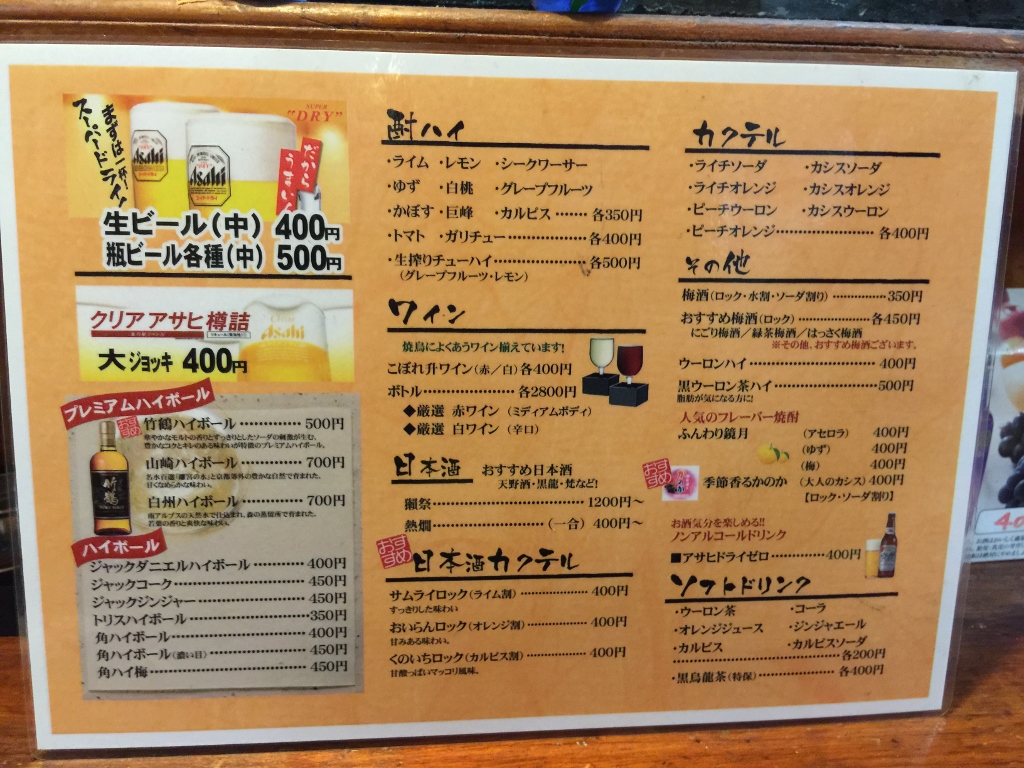 まずは一杯!
スーパードライ!
SUPER
"DRY"
Asahi
Asahi
だから
うまい!
生ビール(中) 400円
瓶ビール各種(中) 500円
クリア アサヒ 樽詰
Asahi
大ジョッキ 400円
プレミアムハイボール
おすすめ
竹鶴
竹鶴ハイボール 500円
華やかなモルトの香りとすっきりとしたソーダの刺激が生む、
豊かなコクとキレのある味わいが特徴のプレミアムハイボール。
山崎ハイボール 700円
名水百選「離宮の水」と京都郊外の豊かな自然で育まれた、
甘くなめらかな味わい。
白州ハイボール 700円
南アルプスの天然水で仕込まれ、森の蒸留所で育まれた、
若葉の香りと爽快な味わい。
ハイボール
ジャックダニエルハイボール 400円
ジャックコーク 450円
ジャックジンジャー 450円
トリスハイボール 350円
角ハイボール 400円
角ハイボール(濃い目) 450円
角ハイ梅 450円
酎ハイ
・ライム ・レモン ・シークワーサー
・ゆず ・白桃 ・グレープフルーツ
・かぼす ・巨峰 ・カルピス 各350円
・トマト ・ガリチュー 各400円
・生搾りチューハイ 各500円
(グレープフルーツ・レモン)
ワイン
焼鳥によくあうワイン揃えています!
こぼれ升ワイン(赤/白) 各400円
ボトル 各2800円
◆厳選 赤ワイン (ミディアムボディ)
◆厳選 白ワイン (辛口)
日本酒 おすすめ日本酒
天野酒・黒龍・梵など!
獺祭 1200円〜
熱燗 (一合) 400円〜
おすすめ
日本酒カクテル
サムライロック(ライム割) 400円
すっきりした味わい
おいらんロック(オレンジ割) 400円
甘みある味わい。
くのいちロック(カルピス割) 400円
甘酸っぱいマッコリ風味。
カクテル
・ライチソーダ ・カシスソーダ
・ライチオレンジ ・カシスオレンジ
・ピーチウーロン ・カシスウーロン
・ピーチオレンジ 各400円
その他
梅酒(ロック・水割・ソーダ割り) 350円
おすすめ梅酒(ロック) 各450円
にごり梅酒/緑茶梅酒/はっさく梅酒
※その他、おすすめ梅酒ございます。
ウーロンハイ 400円
黒ウーロン茶ハイ 500円
脂肪が気になる方に!
人気のフレーバー焼酎
ふんわり鏡月 (アセロラ) 400円
(ゆず) 400円
(梅) 400円
おすすめ
季節香るかのか (大人のカシス) 400円
【ロック・ソーダ割り】
お酒気分を楽しめる!!
ノンアルコールドリンク
■アサヒドライゼロ 400円
ソフトドリンク
・ウーロン茶 ・コーラ
・オレンジジュース ・ジンジャエール
・カルピス ・カルピスソーダ
各200円
・黒烏龍茶(特保) 各400円